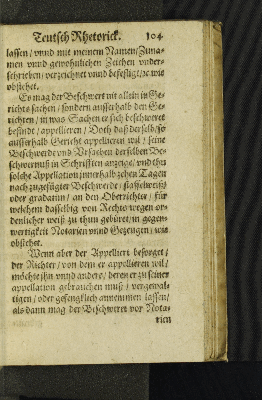 Teutsch Rhetorick. 104
lassen / vnnd mit meinem Namen / Zuna-
men vnnd gewohnlichen Zeichen vnder-
schrieben / verzeichnet vnnd befestigt / ꝛc wie
obstehet.
Es mag der Beschwert nit allein in Ge-
richts sachen / sondern ausserhalb der Ge-
richten / in was Sachen er sich beschweret
befindt / appellieren / Doch daß derselb / so
ausserhalb Gericht appellieren wil / seine
Beschwerde vnd Vrsachen derselben Be-
schwernuß in Schrifften anzeige / vnd thu
solche Appellation innerhalb zehen Tagen
nach zugefügter Beschwerde / staffelweiß /
oder gradatim / an den Oberrichter / für
welchem dasselbig von Rechts wegen or-
denlicher weiß zu thun gebürt / in gegen-
wertigkeit Notarien vnnd Gezeugen / wie
obstehet.
Wenn aber der Appellirt besorget /
der Richter / von dem er appellieren wil /
möchte jhn vnnd andere / deren er zu seiner
appellation gebrauchen muß / vergewal-
tigen / oder gefengklich annemmen lassen /
als dann mag der Beschweret vor Nota-
rien